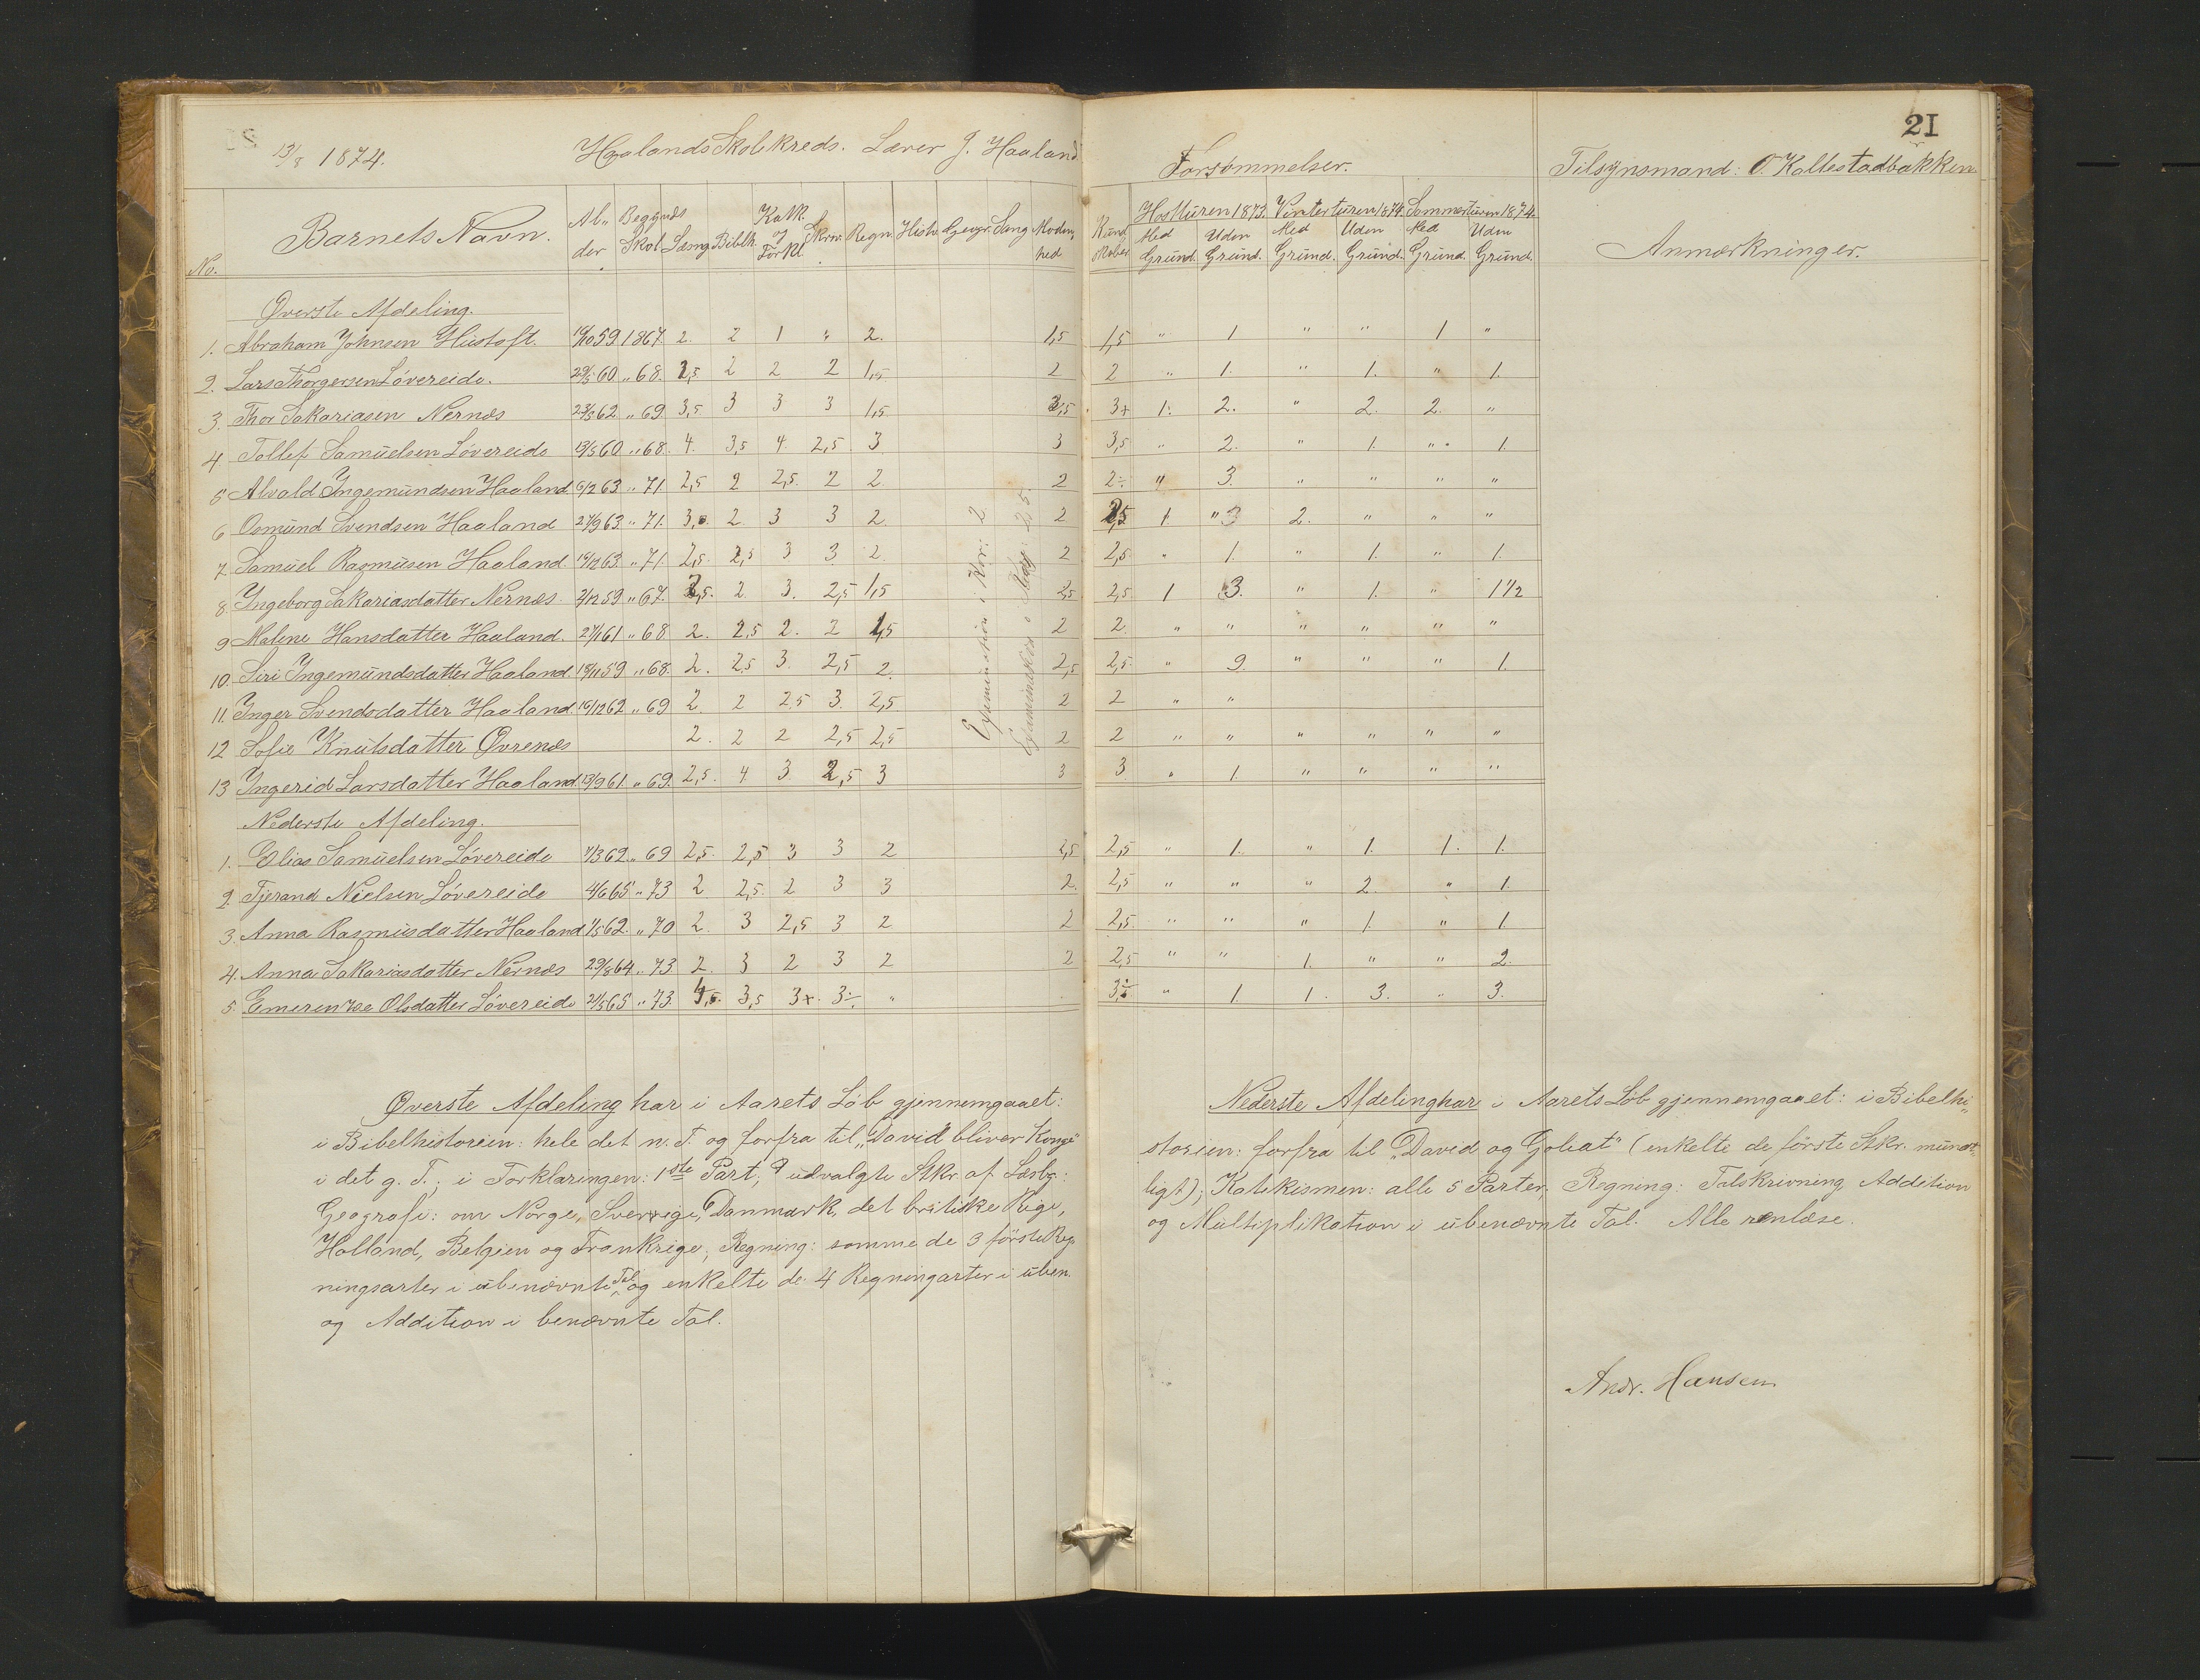 21
13/8 1874. Haalands Skolkreds. Lærer J. Haaland
Forsømmelser.
Tilsynsmand: O. Kallestadbakken
No. Barnets Navn. Al„der Begyndt Skol. Læsng Biblh. Katk. og Forkl. Skrivn. Regn. Histr. Geogr. Sang Modenhed
Kundskaber Høstturen 1873. Vinterturen 1874. Sommerturen 1874.
Med Grund. Uden Grund. Med Grund. Uden Grund. Med Grund. Uden Grund.
Anmærkninger.
Øverste Afdeling.
1. Abraham Johnsen Hustoft. 19/10 59 1867. 2. 2 1 „ 2. 1,5 1,5 „ 1 „ „ 1 „
2. Lars Thorgersen Løvereide. 29/5 60 „ 68. 2,5 2 2 2 1,5 2 2 „ 1. „ 1. „ 1.
3. Thor Sakariasen Nernæs 23/3 62 „ 69 3,5 3 3 3 1,5 2,5 3+ 1. 2. „ 2. 2. „
4 Tollef Samuelsen Løvereide 13/5 60 „ 68. 4. 3,5 4. 2,5 3 3 3,5 „ 2. „ 1. „ 1.
5 Alvald Ingemundsen Haaland 6/2 63 „ 71. 2,5 2 2,5. 2 2. 2 2÷ „ 3. „ „ „ „
6 Osmund Svendsen Haaland 27/9 63 „ 71. 3. 2. 3 3 2 2 2,5 1. „ 3 2. „ „ „
7. Samuel Rasmusen Haaland 19/12 63. „ 71 2,5. 2,5 3 3 2 2 2,5 „ 1. „ 1. „ 1.
8. Ingeborg Sakariasdatter Nernæs. 2/12 59 „ 67. 2,5. 2 3. 2,5 1,5 2,5 2,5 1 3. „ 1. „ 1 1/2
9 Malene Hansdatter Haaland. 27/1 61 „ 68 2. 2,5 2. 2 1,5 2 2. „ „ „ „ „ „
10. Siri Ingemundsdatter Haaland 18/11 59 „ 68. 2. 2,5 3. 2,5 2. 2,5 2,5. „ 9. „ „ „ 1.
11. Inger Svendsdatter Haaland. 10/12 62 „ 69 2. 2 2,5 3. 2,5 2 2 „ „
12 Sofie Knutsdatter Øvrenæs 2. 2 2 2,5 2,5 2 2 „ „ „ „ „ „
13 Ingerid Larsdatter Haaland. 13/9 61. „ 69. 2,5. 4 3. 2,5 3 3 3 „ 1. „ „ „ „
Examination i Kor: 2
Nederste Afdeling.
1. Elias Samuelsen Løvereide 7/3 62 „ 69 2,5. 2,5 3 3 2 2,5 2,5 „ 1. „ 1. 1. 1.
2. Tjerand Nielsen Løvereide 4/6 65 „ 73 2 2,5. 2 3 3 2. 2,5 „ „ „ 2. „ 1.
3. Anna Rasmusdatter Haaland 1/5 62. „ 70 2. 3 2,5 3 2 2 2,5. „ „ „ 1. „ 1.
4. Anna Sakariasdatter Nernæs 29/8 64 „ 73 2. 3 2 3 2 2 2,5 „ „ 1. „ „ 2.
5. Emerentze Olsdatter Løvereide 21/5 65 „ 73. 3,5 3+. 3÷. „ „ 1. 1. 3. „ 3.
Øverste Afdeling har i Aarets Løb gjennemgaaet:
i Bibelhistorien: hele det n. T. og forfra til „David bliver Konge“
i det g. T.; i Forklaringen: 1ste Part; 9 udvalgte Stkr. af Læsbg:
Geografi: om Norge, Sverrige, Danmark, det britiske Rige,
Holland, Belgien og Frankrige; Regning: somme de 3 første Reg„
ningsarter i ubenævnte Tal og enkelte de 4 Regningarter i uben.
og Addition i benævnte Tal.
Nederste Afdeling har i Aarets Løb gjennemgaaet: i Bibelhi„
storien: forfra til „David og Goliat“ (enkelte de første Stkr. mundt„
ligt); Katekismen: alle 5 Parter; Regning: Talskrivning Addition
og Multiplikation i ubenævnte Tal. Alle renlæse.
Andr. Hansen